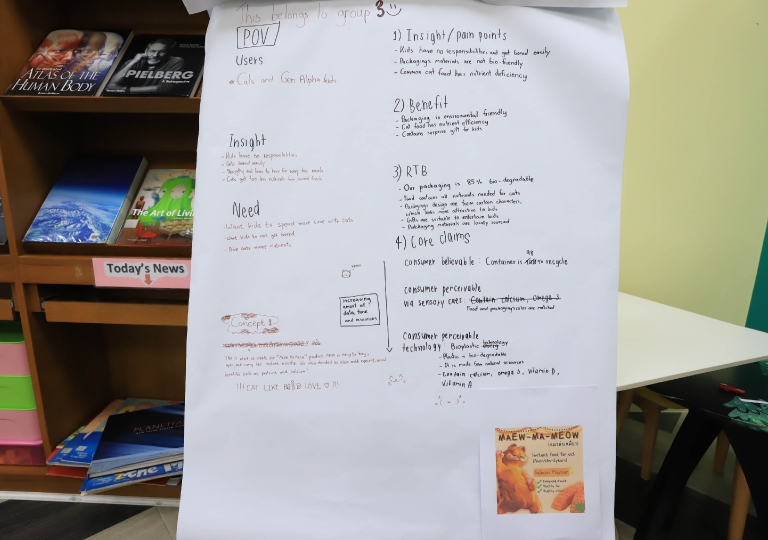 This belongs to group 3
POV
Users
Cats and Gen Alpha kids
Insight
- Kids have no responsibilities
- Cats bored easily
Need
- Want kids to spend more time with cats
- Want kids to not get bored
- Give cats more nutrients
Concept 1
!!! CAT LIKE LOVE !!!
increasing
amount of
data, time
and resources
1) Insight/pain points
- Kids have no responsibilities and get bored easily
- Packagings materials are not bio-friendly
- Common cat food has nutrient deficiency
2) Benefit
- Packaging is environmental friendly
- Cat food has nutrient efficiency
- Contains surprise gift for kids
3) RTB
- Our packaging is 85% bio-degradable
- Food contains all nutrients needed for cats
- Packagings design are from cartoon characters,
which looks more attractive to kids
- Gifts are suitable to entertain kids
- Packaging materials are locally sourced
4) Core claims
consumer believable : Container is to recycle
consumer perceivable
via sensory cues: Contain calcium, omega 3
Food and packaging color are matched
consumer perceivable
technology : Bioplastic technology
- Plastic is bio-degradable
- It is made from natural resources
- Contain calcium, omega 3, vitamin D,
vitamin A
MAEW-MA-MEOW
Instant food for cat
Salmon Flavour
ATLAS OF THE
HUMAN BODY
PIELBERG
A Retrospective
The Art of Livi
Today's News
PLANETA